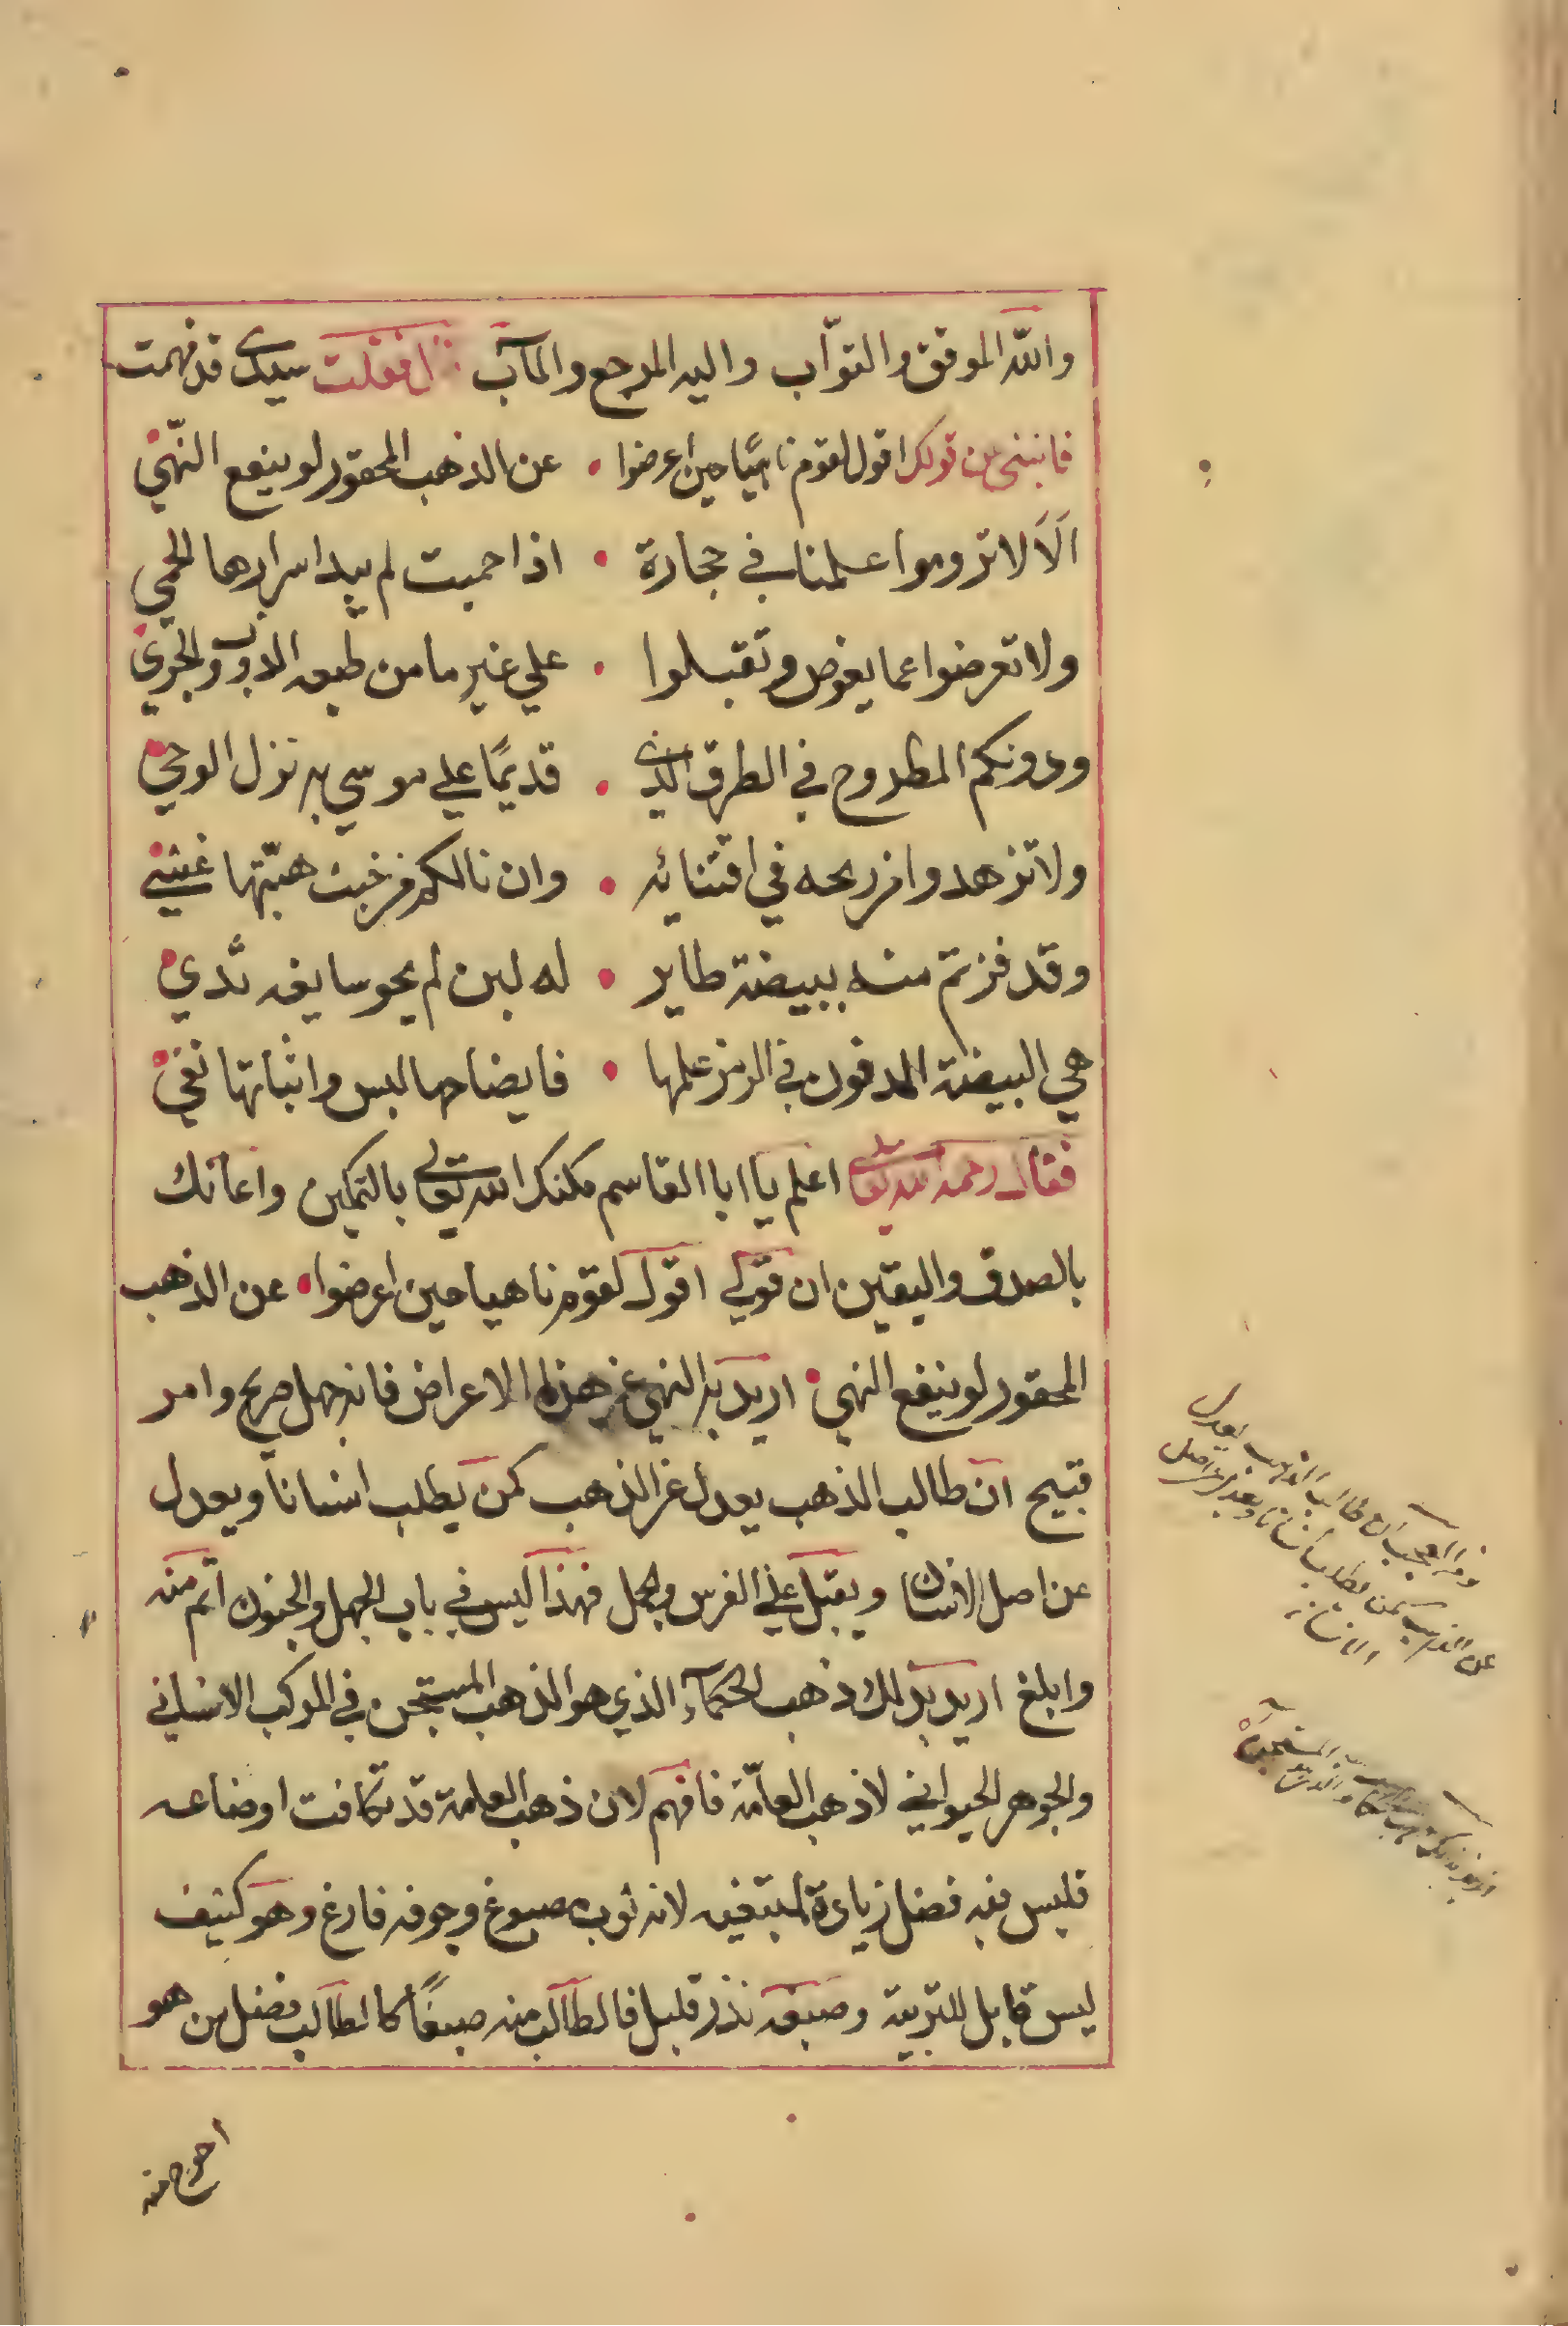 والله الموفق والتوّاب واليه المرجع والمآب فقلت سيدى قد فهمت
فانبنى من قولك اقول لقوم ناهيًا حين اعرضوا • عن الذهب المحقور لو ينفع النّهي
اَلَا لا تروموا علمنا في حجارة • اذا حميت لم يبد اسرارها الحمي
ولا تعرضوا عما يغوص وتقبلوا • علي غير ما من طبعه الذوب والجري
ودونكم المطروح في الطرق الذي • قديمًا علي موسي به نزل الوحي
ولا تزهدوا في ريحه في اقتنائه • وان نالكم من خبث هبّتها غشي
وقد فزتم منه ببيضة طاير • له لبن لم يحو سايغه ثدي
هي البيضة المدفون في الرمز علمها • فايضاحها لبس واثباتها نفي
فقال رحمه الله تعالى اعلم يا ابا القاسم مكنك الله تعالى بالتمكين واعانك
بالصدق واليقين ان قولي اقول لقوم ناهيا حين اعرضوا • عن الذهب
المحقور لو ينفع النهي • اريد به النهي عن هذا الاعراض فانه جهل صريح وامر
قبيح ان طالب الذهب يعدل عن الذهب كمن يطلب انسانا ويعدل
عن اصل الانسان ويقبل علي الفرس والجمل فهذا ليس في باب الجهل والجنون اتم منه
وابلغ اريد بذلك ذهب الحكمآء الذي هو الذهب المستجن في المركب الانساني
والجوهر الحيواني لا ذهب العامّة فافهم لان ذهب العامة قد تكافت اوضاعه
فليس فيه فضل زيادة لمبتغيه لانه ثوب مصبوغ وجوفه فارغ وهو كثيف
ليس قابل للتربية وصبغه نذر قليل فالطالب منه صبغًا كالطالب فضل من هو
احوج منه
ومن العجب ان طالب الذهب يعدل
عن الذهب كمن يطلب انسانا ويعدل عن اصل
الانسان